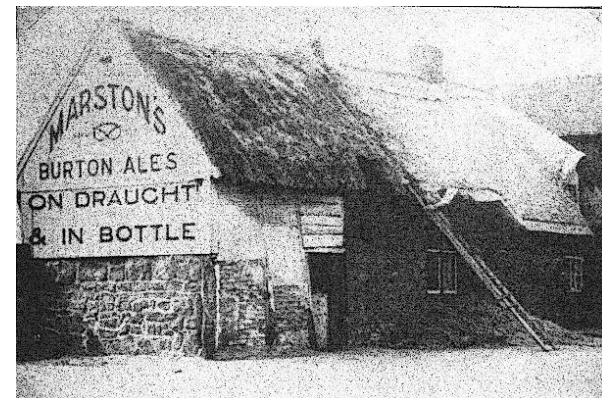 MARSTON'S
BURTON ALES
ON DRAUGHT
& IN BOTTLE